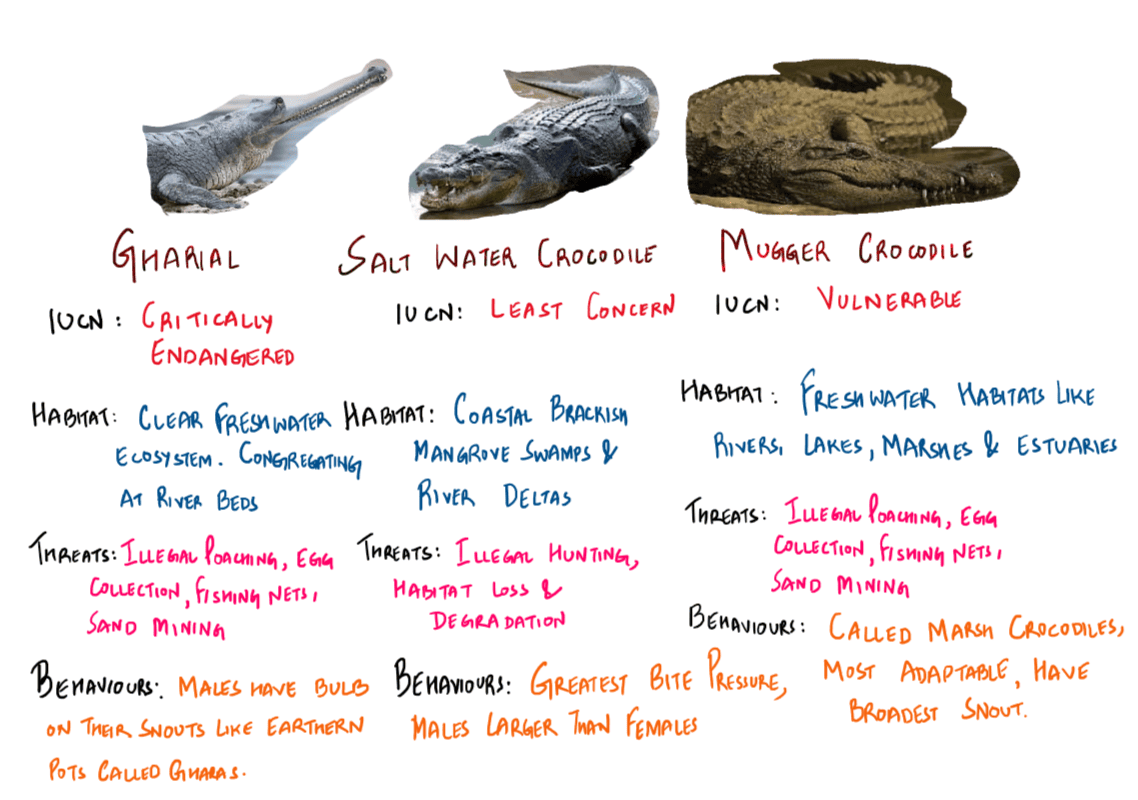 GHARIAL
IUCN: CRITICALLY
ENDANGERED
HABITAT: CLEAR FRESHWATER
ECOSYSTEM. CONGREGATING
AT RIVER BEDS
THREATS: ILLEGAL POACHING, EGG
COLLECTION, FISHING NETS,
SAND MINING
BEHAVIOURS: MALES HAVE BULB
ON THEIR SNOUTS LIKE EARTHERN
POTS CALLED GHARAS.
SALT WATER CROCODILE
IUCN: LEAST CONCERN
HABITAT: COASTAL BRACKISH
MANGROVE SWAMPS &
RIVER DELTAS
THREATS: ILLEGAL HUNTING,
HABITAT LOSS &
DEGRADATION
BEHAVIOURS: GREATEST BITE PRESSURE,
MALES LARGER THAN FEMALES
MUGGER CROCODILE
IUCN: VULNERABLE
HABITAT: FRESHWATER HABITATS LIKE
RIVERS, LAKES, MARSHES & ESTUARIES
THREATS: ILLEGAL POACHING, EGG
COLLECTION, FISHING NETS,
SAND MINING
BEHAVIOURS: CALLED MARSH CROCODILES,
MOST ADAPTABLE, HAVE
BROADEST SNOUT.